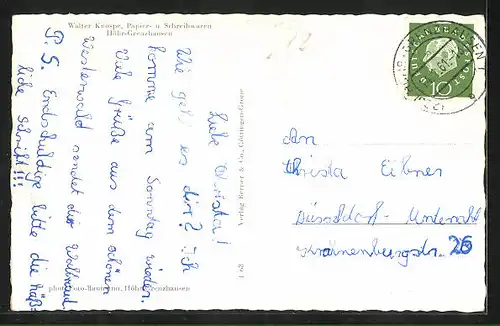 Walter Knospe, Papier- u. Schreibwaren
Höhr-Grenzhausen
Liebe Christa!
Wie geht es dir? Ich
komme am Sonntag wieder.
Viele Grüße aus dem schönen
Westerwald sendet dir
P. S. Endschuldige bitte die häß=
liche Schrift!!!
Verlag Berner & Co., Göttingen-Grone
1 68
photo: Foto-Baumann, Höhr-Grenzhausen
10
An
Christa Eibner
Düsseldorf-Unterrath
Kronenburgstr. 26